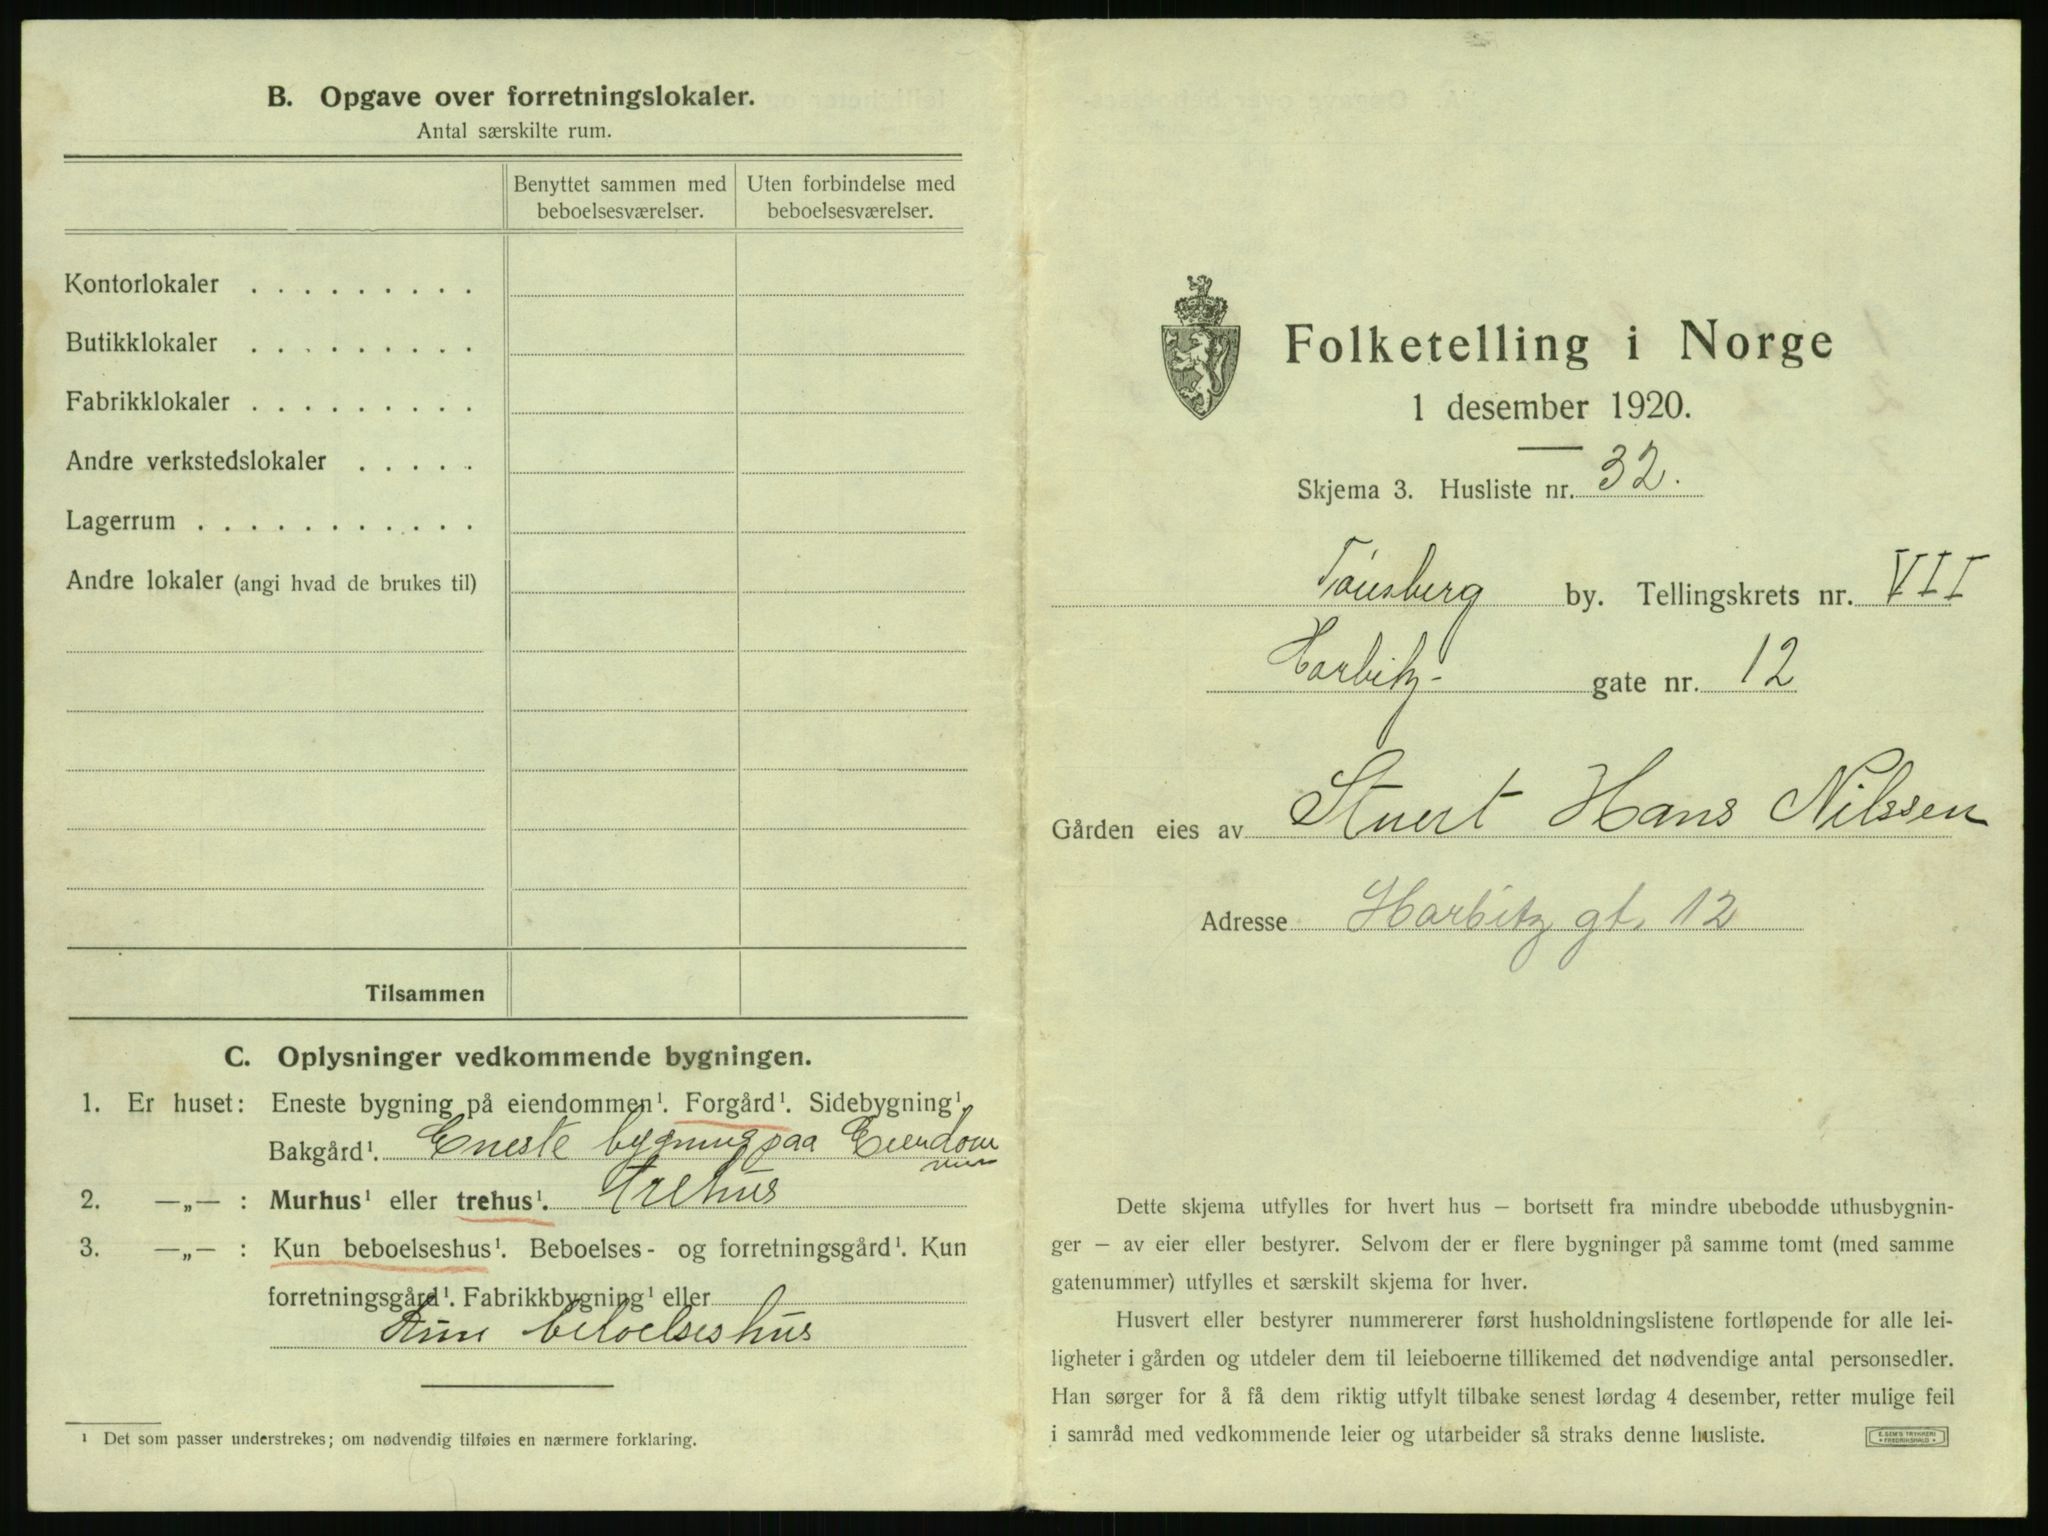 B. Opgave over forretningslokaler.
Antal særskilte rum.
Benyttet sammen med beboelsesværelser.
Uten forbindelse med beboelsesværelser.
Kontorlokaler . . . . . . . . .
Butikklokaler . . . . . . . . .
Fabrikklokaler . . . . . . . . .
Andre verkstedslokaler . . . . .
Lagerrum . . . . . . . . . . . .
Andre lokaler (angi hvad de brukes til)
Tilsammen
C. Oplysninger vedkommende bygningen.
1. Er huset: Eneste bygning på eiendommen¹. Forgård¹. Sidebygning¹.
Bakgård¹. Eneste bygning paa Eiendom
men
2. —„— : Murhus¹ eller trehus¹. trehus
3. —„— : Kun beboelseshus¹. Beboelses- og forretningsgård¹. Kun
forretningsgård¹. Fabrikkbygning¹ eller
Kun beboelseshus
¹ Det som passer understrekes; om nødvendig tilføies en nærmere forklaring.
Folketelling i Norge
1 desember 1920.
Skjema 3. Husliste nr. 32.
Tönsberg by. Tellingskrets nr. VII
Harbitz- gate nr. 12
Gården eies av Stuert Hans Nilssen
Adresse Harbitz gt. 12
Dette skjema utfylles for hvert hus — bortsett fra mindre ubebodde uthusbygnin-
ger — av eier eller bestyrer. Selvom der er flere bygninger på samme tomt (med samme
gatenummer) utfylles et særskilt skjema for hver.
Husvert eller bestyrer nummererer først husholdningslistene fortløpende for alle lei-
ligheter i gården og utdeler dem til leieboerne tillikemed det nødvendige antal personsedler.
Han sørger for å få dem riktig utfylt tilbake senest lørdag 4 desember, retter mulige feil
i samråd med vedkommende leier og utarbeider så straks denne husliste.
E. SEM'S TRYKKERI
• FREDRIKSHALD •